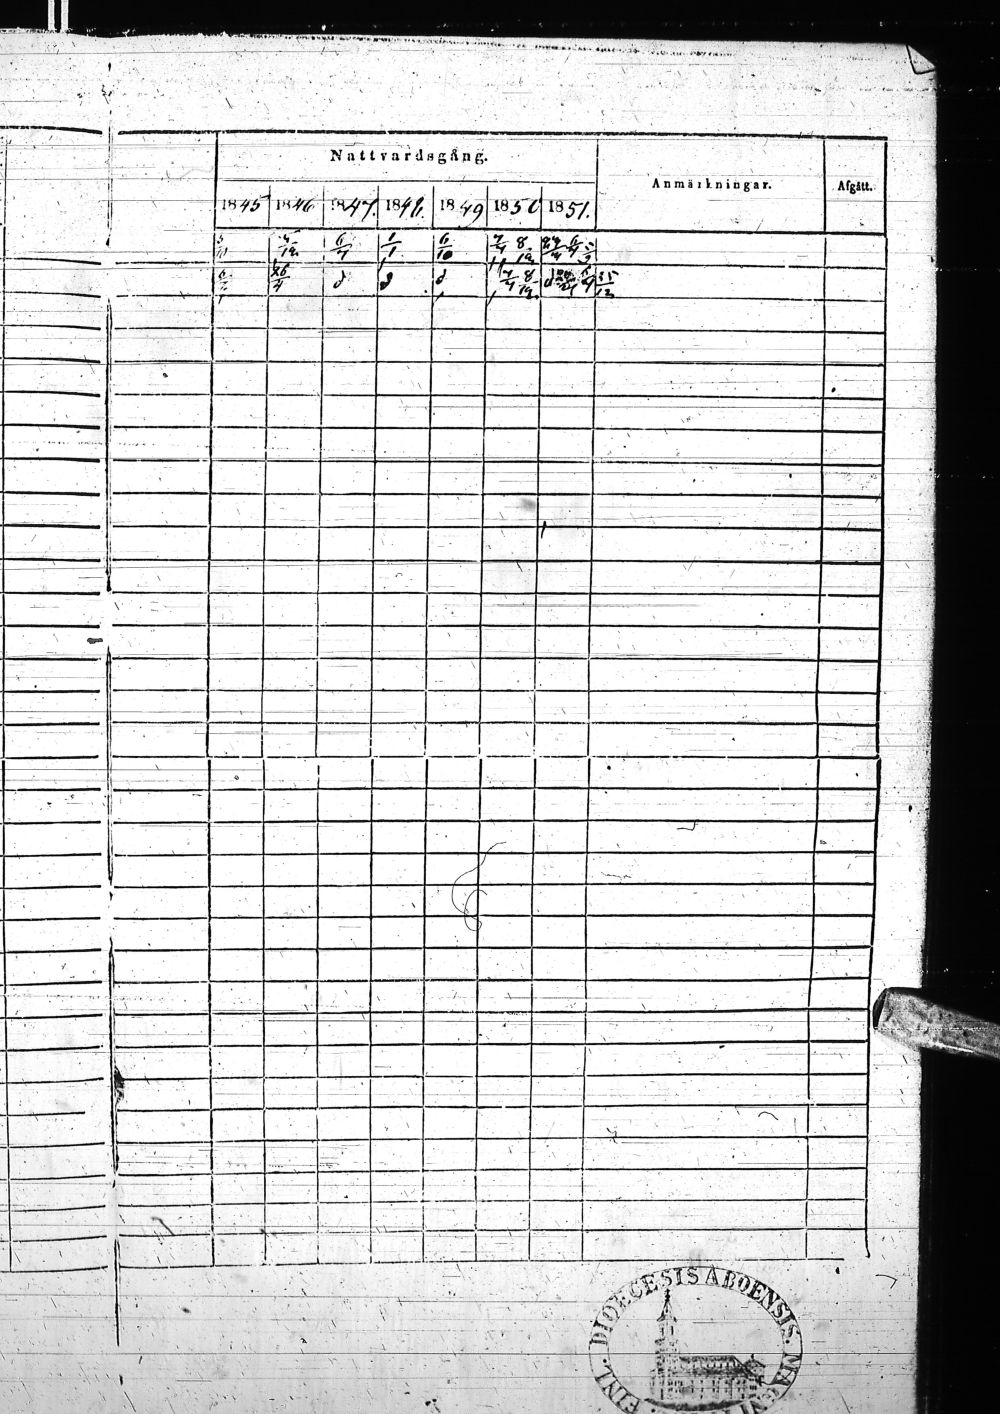 Nattvardsgång.
Anmärkningar.
Afgått.
1845 1846 1847. 1848. 1849 1850 1851.
6/4 1/1 6/10 7/4 8/12
26/4 d d d 7/4 8/12 d 25/12
DIOECESIS ABOENSIS. MAGNI
FINL.